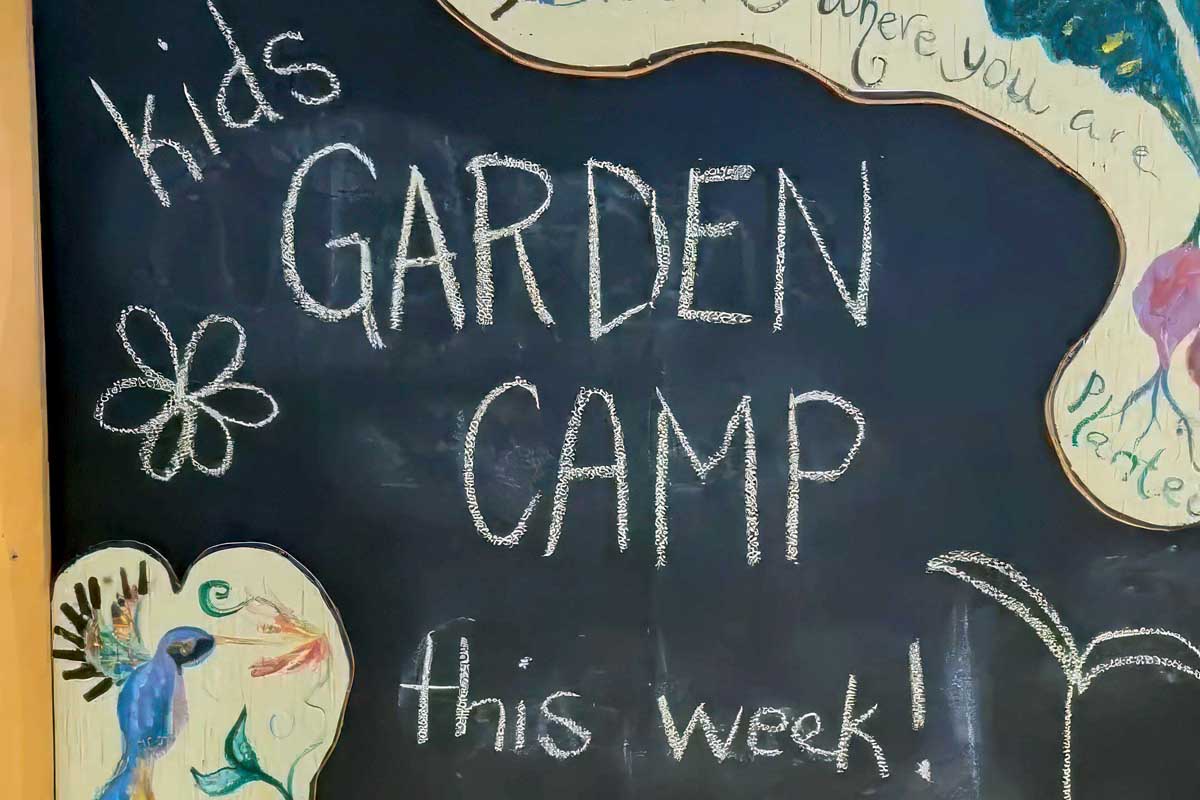 where you are
kids
GARDEN
CAMP
this week!